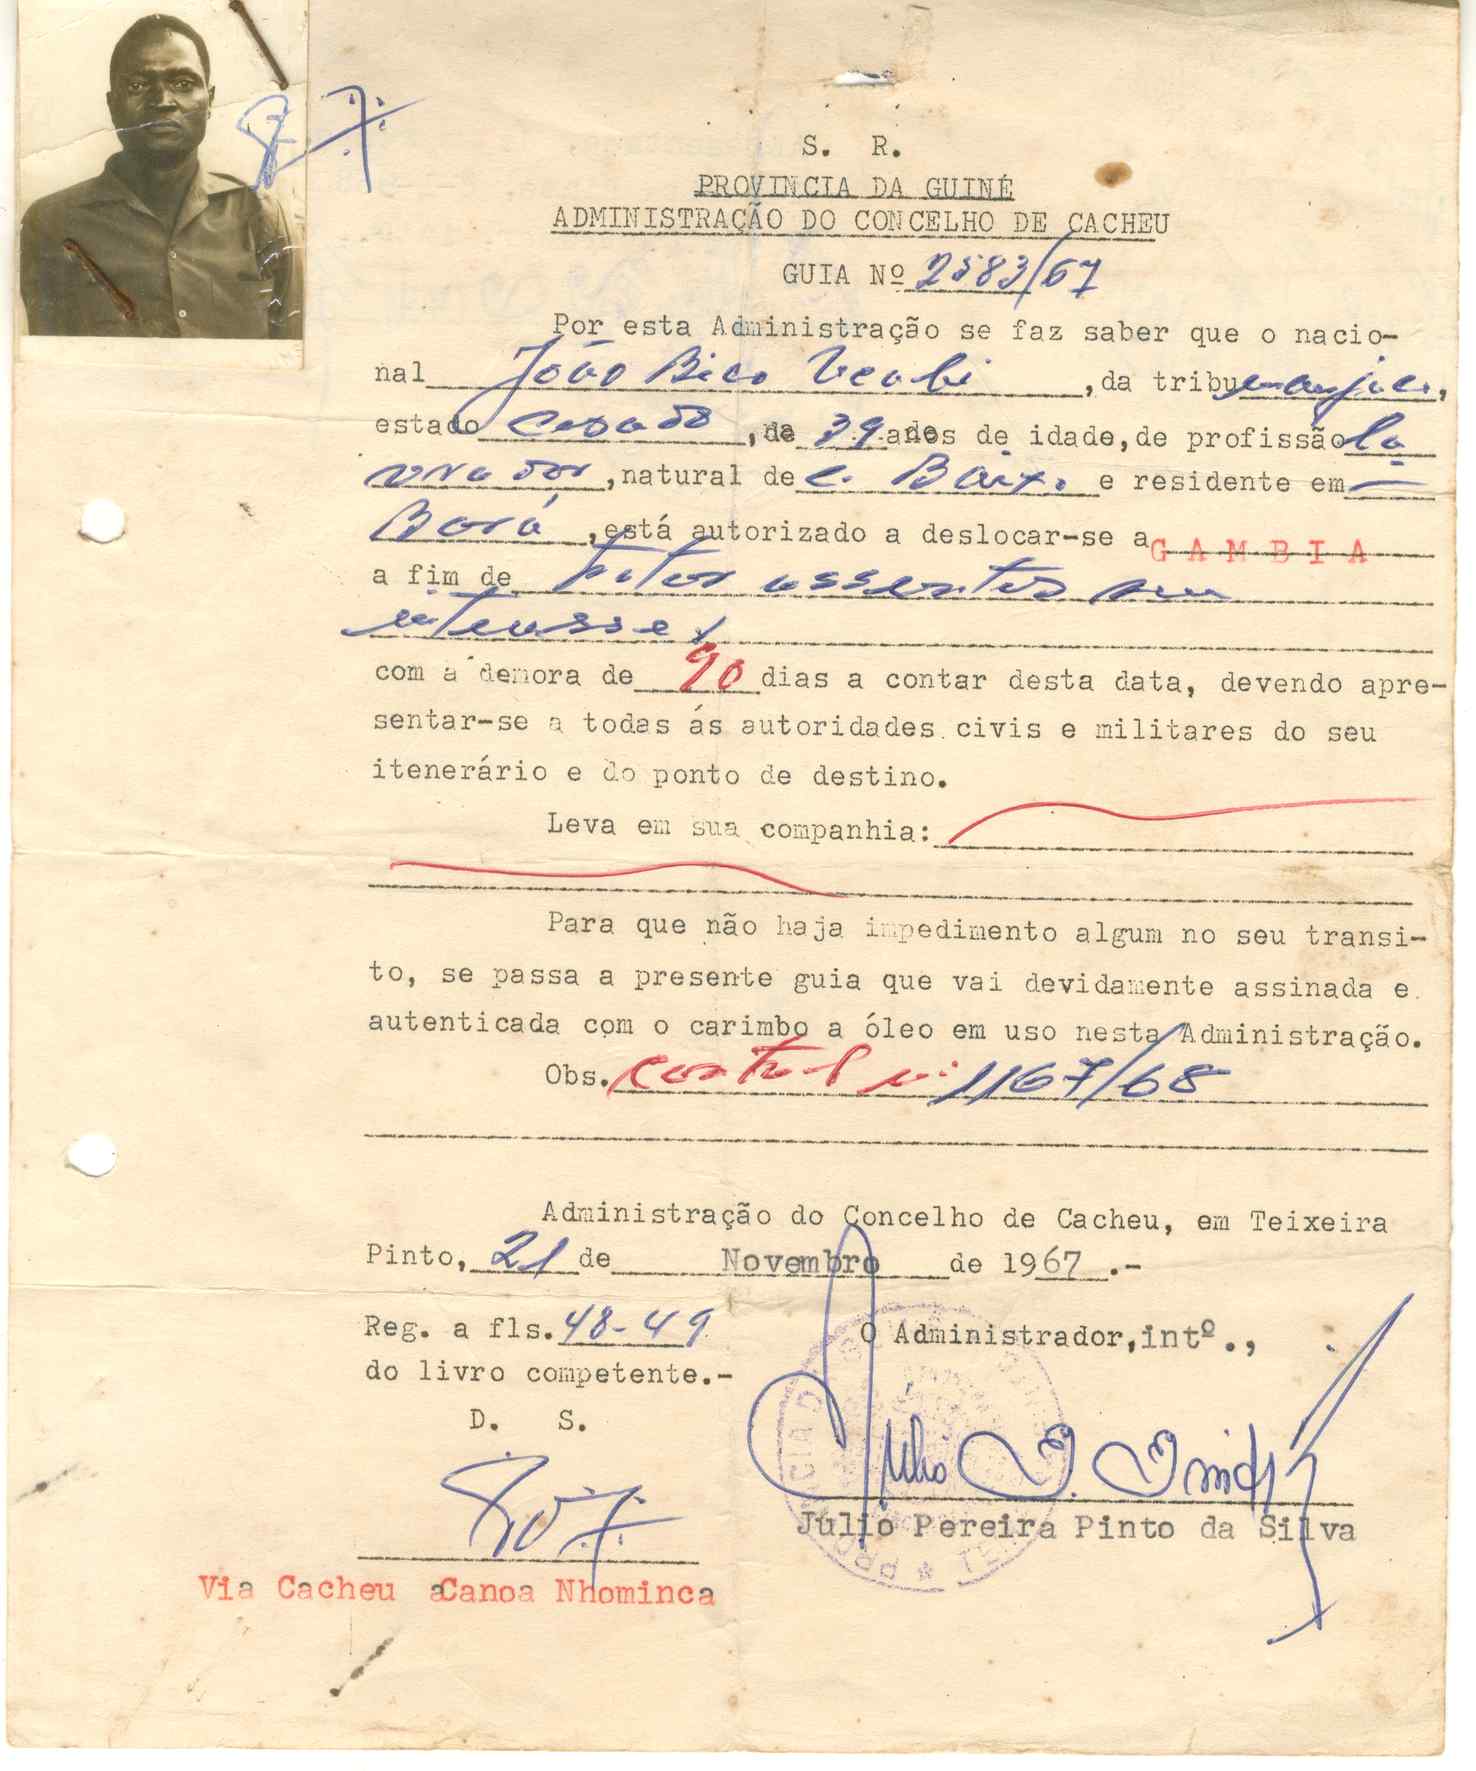 S. R.
PROVINCIA DA GUINÉ
ADMINISTRAÇÃO DO CONCELHO DE CACHEU
GUIA Nº 2583/67
Por esta Administração se faz saber que o nacio-
nal João Bico, da tribu
estado casado, de 39 anos de idade, de profissão la
vrador, natural de C. Baixo e residente em
Bará, está autorizado a deslocar-se a GAMBIA
a fim de tratar assuntos seu
interesse
com a demora de 90 dias a contar desta data, devendo apre-
sentar-se a todas ás autoridades civis e militares do seu
itenerário e do ponto de destino.
Leva em sua companhia:
Para que não haja impedimento algum no seu transi-
to, se passa a presente guia que vai devidamente assinada e
autenticada com o carimbo a óleo em uso nesta Administração.
Obs. control nº 1167/68
Administração do Concelho de Cacheu, em Teixeira
Pinto, 21 de Novembro de 1967.-
Reg. a fls. 48-49
O Administrador, intº.,
do livro competente.-
D. S.
Júlio Pereira Pinto da Silva
Via Cacheu a Canoa Nhominca